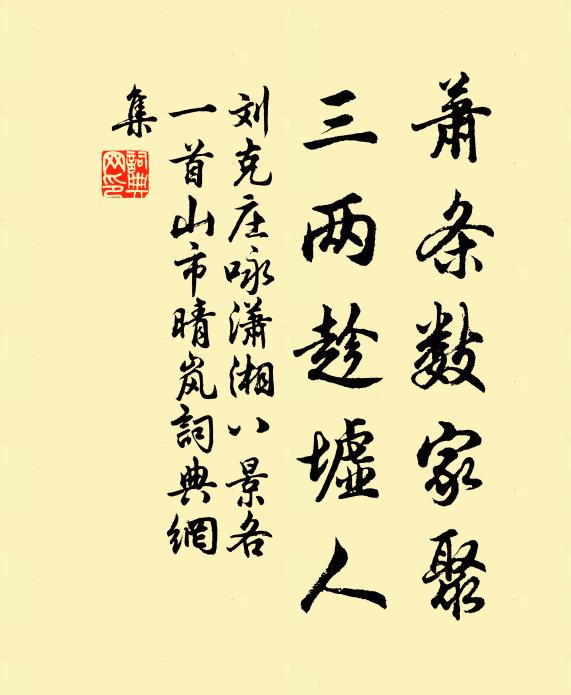 萧条数家聚
三两趁墟人
刘克庄咏潇湘八景各
一首山市晴岚詞典網
集
詞典网